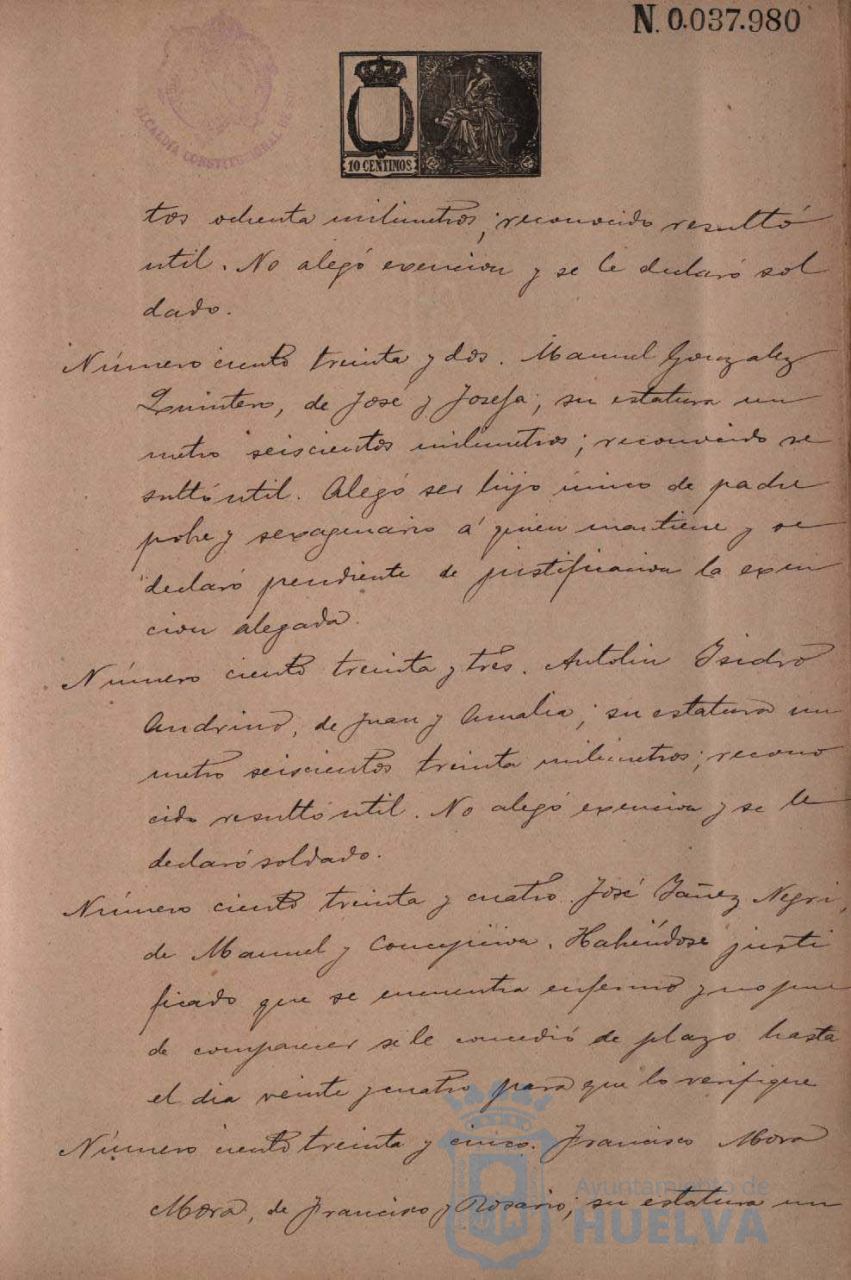 N. 0.037.980
ALCALDÍA CONSTITUCIONAL DE
10 CENTIMOS
tos ochenta milimetros; reconocido resultó
util. No alegó exencion y se le declaró sol
dado.
Número ciento treinta y dos. Manuel Gonzalez
Quintero, de José y Josefa; su estatura un
metro seiscientos milimetros; reconocido re
sultó util. Alegó ser hijo único de padre
pobre y sexagenario á quien mantiene y se
declaró pendiente de justificacion la exen
cion alegada.
Número ciento treinta y tres. Antolin Isidro
Andrino, de Juan y Amalia; su estatura un
metro seiscientos treinta milimetros; recono
cido resultó util. No alegó exencion y se le
declaró soldado.
Número ciento treinta y cuatro. José Yañez Negri,
de Manuel y Concepcion. Habiéndose justi
ficado que se encuentra enfermo y no pue
de comparecer se le concedió de plazo hasta
el dia veinte y cuatro para que lo verifique
Número ciento treinta y cinco. Francisco Mora
Mora, de Francisco y Rosario; su estatura un
Ayuntamiento de
HUELVA